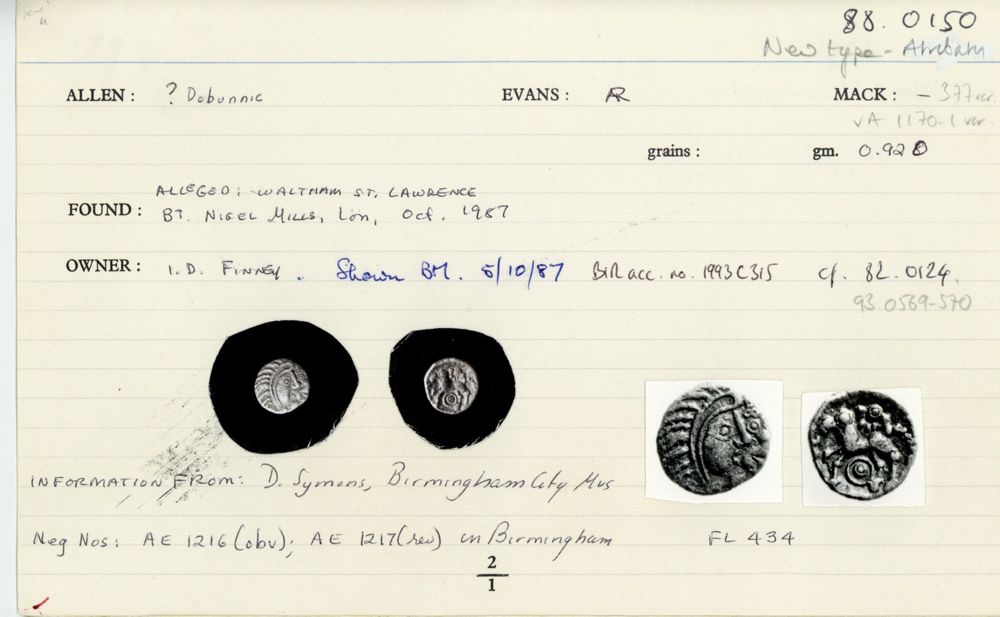 88.0150
New type - Atrebatic
ALLEN : ? Dobunnic EVANS : AR MACK : - 377 var.
VA 1170-1 var.
grains : gm. 0.920
ALLEGED : WALTHAM ST. LAWRENCE
FOUND : BT. NIGEL MILLS, Lon, Oct. 1987
OWNER : I.D. FINNEY. Shown BM. 5/10/87 BIR acc. no. 1993C315 cf. 82.0124.
93.0569-570
INFORMATION FROM: D. Symons, Birmingham City Mus
Neg Nos: AE 1216 (obv); AE 1217 (rev) in Birmingham FL 434
2
1